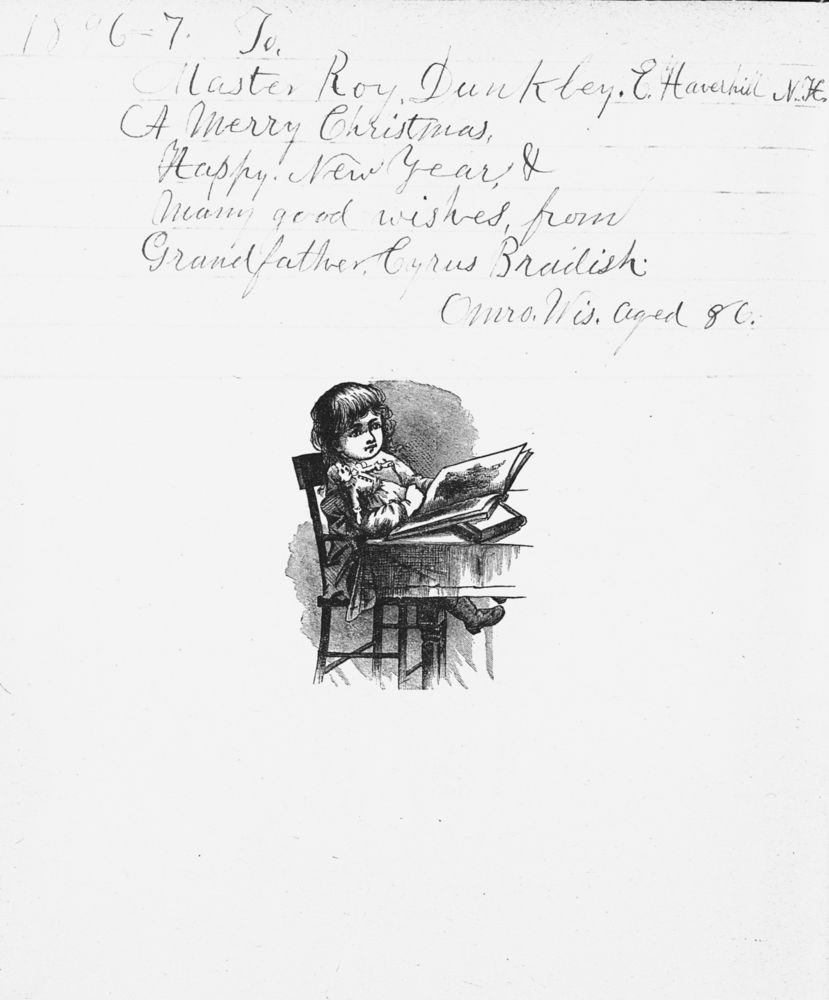 1896-7. To.
Master Roy. Dunkley. E. Haverhill N.H.
A Merry Christmas,
Happy. New Year, &
Many good wishes, from
Grandfather. Cyrus Bradish.
Omro. Wis. aged 80.